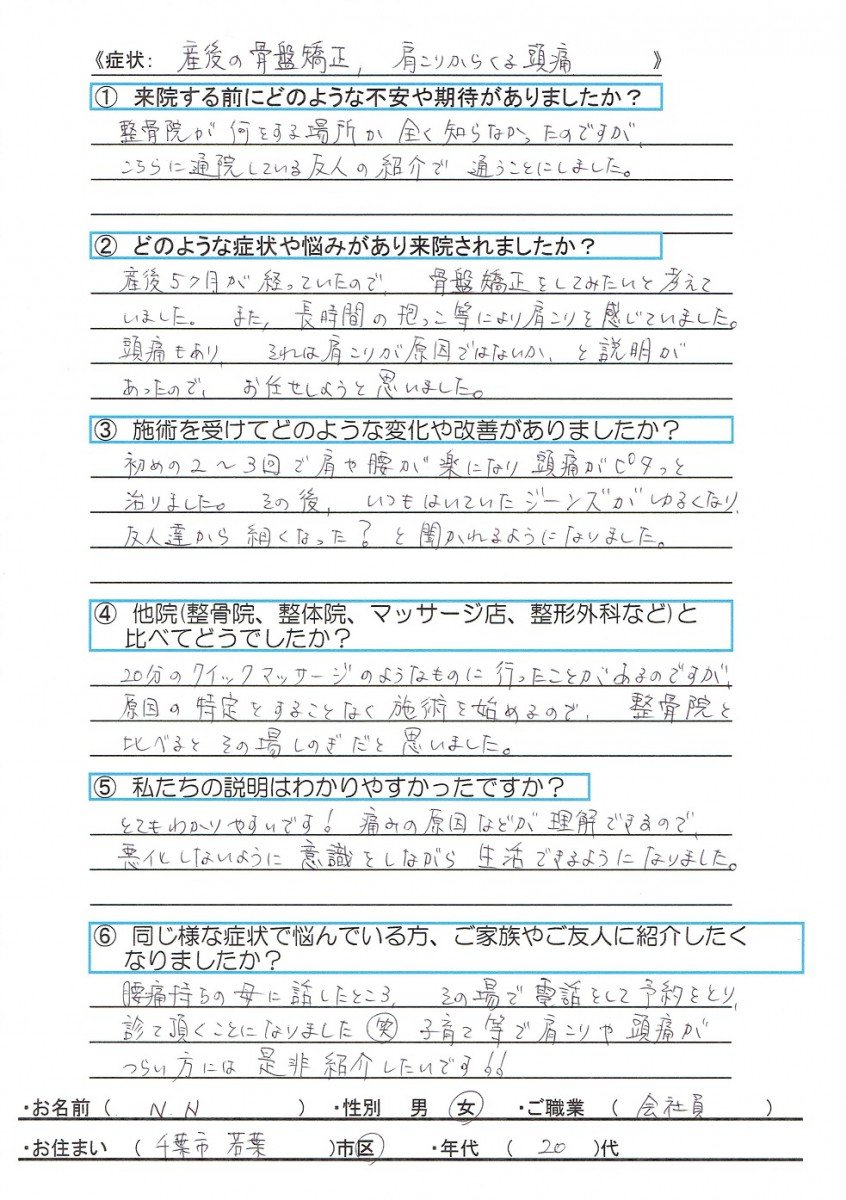 《症状: 産後の骨盤矯正, 肩こりからくる頭痛 》
① 来院する前にどのような不安や期待がありましたか？
整骨院が何をする場所か全く知らなかったのですが、
こちらに通院している友人の紹介で通うことにしました。
② どのような症状や悩みがあり来院されましたか？
産後5ヶ月が経っていたので、骨盤矯正をしてみたいと考えて
いました。また、長時間の抱っこ等により肩こりを感じていました。
頭痛もあり、それは肩こりが原因ではないか、と説明が
あったので、お任せしようと思いました。
③ 施術を受けてどのような変化や改善がありましたか？
初めの2～3回で肩や腰が楽になり頭痛がピタっと
治りました。その後、いつもはいていたジーンズがゆるくなり、
友人達から細くなった？と聞かれるようになりました。
④ 他院(整骨院、整体院、マッサージ店、整形外科など)と
比べてどうでしたか？
20分のクイックマッサージのようなものに行ったことがあるのですが、
原因の特定をすることなく施術を始めるので、整骨院と
比べるとその場しのぎだと思いました。
⑤ 私たちの説明はわかりやすかったですか？
とてもわかりやすいです！痛みの原因などが理解できるので、
悪化しないように意識をしながら生活できるようになりました。
⑥ 同じ様な症状で悩んでいる方、ご家族やご友人に紹介したく
なりましたか？
腰痛持ちの母に話したところ、その場で電話をして予約をとり、
診て頂くことになりました㊗笑 子育て等で肩こりや頭痛が
つらい方には是非紹介したいです!!
・お名前（ N.N ） ・性別 男 女 ・ご職業 （ 会社員 ）
・お住まい （ 千葉市 若葉 ）市区 ・年代 （ 20 ）代